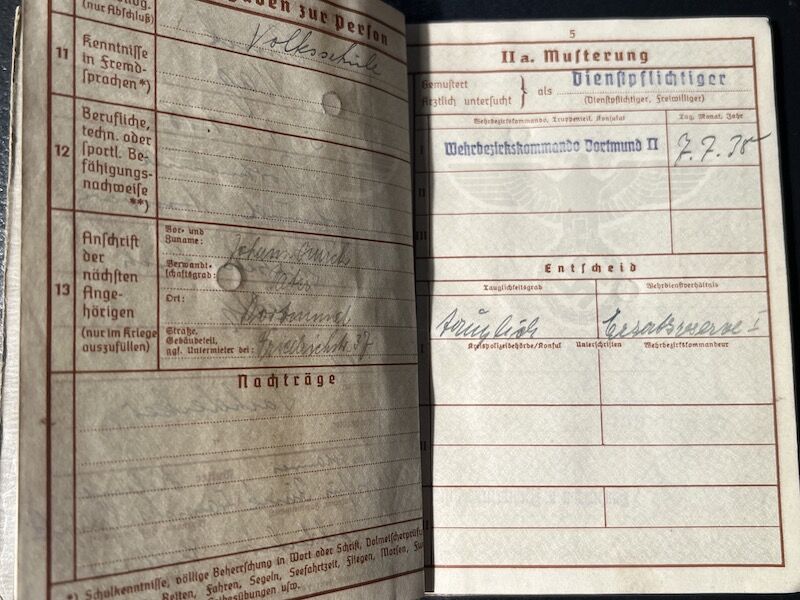 zur Person
(nur Abschluß)
Volksschule
11
Kenntnisse
in Fremd-
sprachen *)
12
Berufliche,
techn. oder
sportl. Be-
fähigungs-
nachweise
**)
13
Anschrift
der
nächsten
Ange-
hörigen
(nur im Kriege
auszufüllen)
Vor- und
Zuname:
Verwandt-
schaftsgrad:
Ort:
Dortmund
Straße,
Gebäudeteil,
ggf. Untermieter bei:
37
Nachträge
*) Schulkenntnisse, völlige Beherrschung in Wort oder Schrift, Dolmetscherprüf.
Reiten, Fahren, Segeln, Seefahrtzeit, Fliegen, Morsen,
usw.
5
II a. Musterung
Gemustert
Ärztlich untersucht
als
Dienstpflichtiger
(Dienstpflichtiger, Freiwilliger)
Wehrbezirkskommando, Truppenteil, Konsulat
Tag, Monat, Jahr
I
Wehrbezirkskommando Dortmund II
7. 7. 38
II
III
Entscheid
Tauglichkeitsgrad
Wehrdienstverhältnis
I
tauglich
Ersatzreserve I
Kreispolizeibehörde/Konsul
Unterschriften
Wehrbezirkskommandeur
II